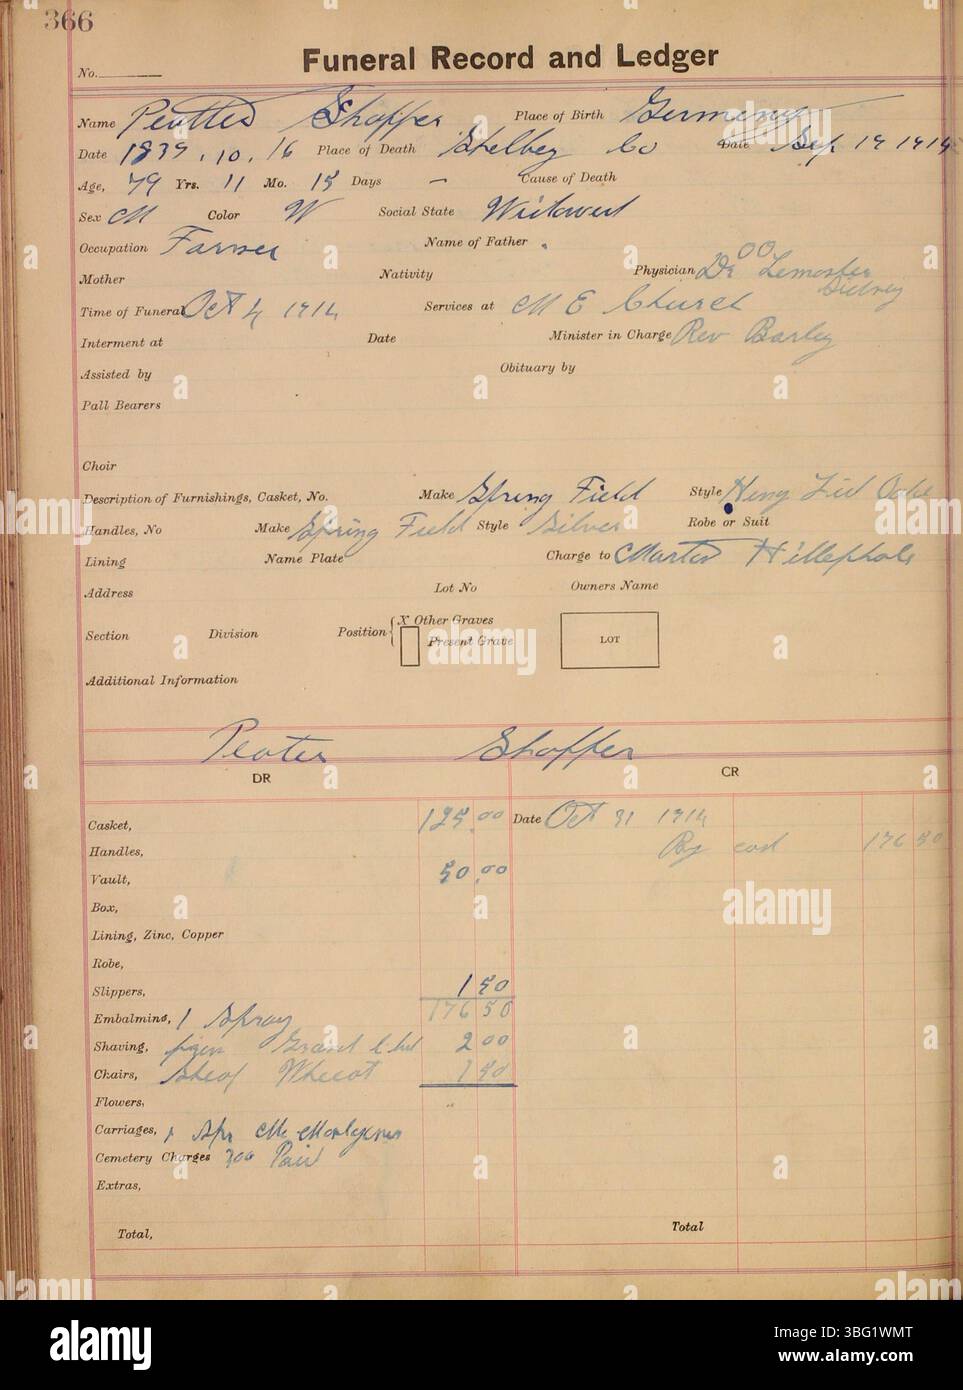 366
Funeral Record and Ledger
No.
Name Shaffer Place of Birth Germeny
Date 10. 16 Place of Death Shelbey Co Date Sep 19 1914
Age, 79 Yrs. 11 Mo. 15 Days – Cause of Death
Sex M Color W Social State Widowed
Occupation Farmer Name of Father
Mother Nativity Physician Dr OO Lemaster
Sidney
Time of Funeral Oct 4 1914 Services at M E Church
Interment at Date Minister in Charge Rev Barley
Assisted by Obituary by
Pall Bearers
Choir
Description of Furnishings, Casket, No. Make Spring Field Style Lid Oake
Handles, No Make Spring Field Style Silver Robe or Suit
Lining Name Plate Charge to
Address Lot No Owners Name
Section Division Position X Other Graves
Present Grave
LOT
Additional Information
Peater Shaffer
DR CR
Casket, 125.00 Date Oct 31 1914
Handles, By cash 176 50
Vault, 50.00
Box,
Lining, Zinc, Copper
Robe,
Slippers, 1 50
176 50
Embalming, 1 Spray
Shaving, from Grand Child 2 00
Chairs, Sheaf Wheeat 1 50
Flowers,
Carriages,
Cemetery Charges 300 Paid
Extras,
Total, Total
alamy
Image ID: 3BG1WMT
www.alamy.com